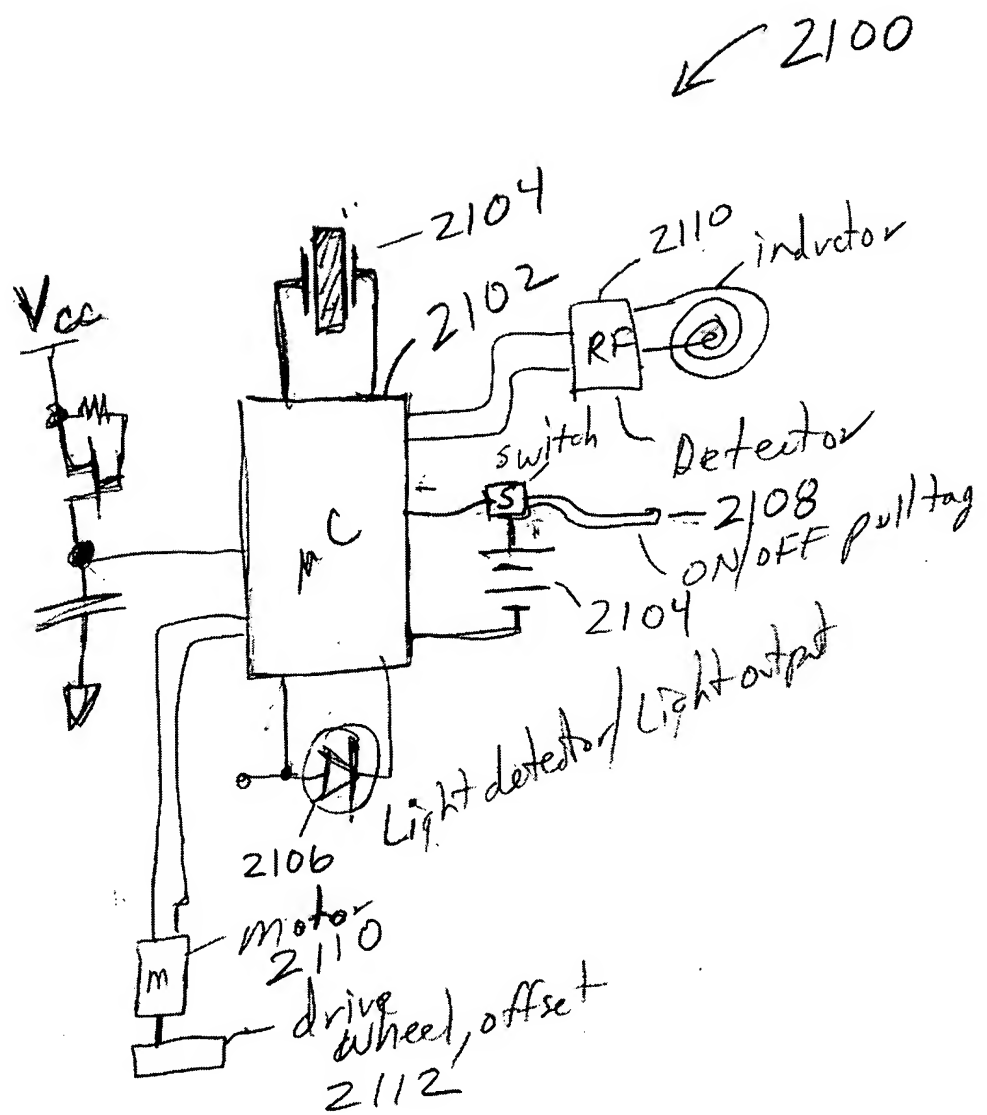 2100
2104
2110
inductor
Vcc
2102
RF
switch
Detector
S
2108
ON/OFF pull tag
μC
2104
Light detector/Light output
2106
motor
2110
m
drive
wheel, offset
2112